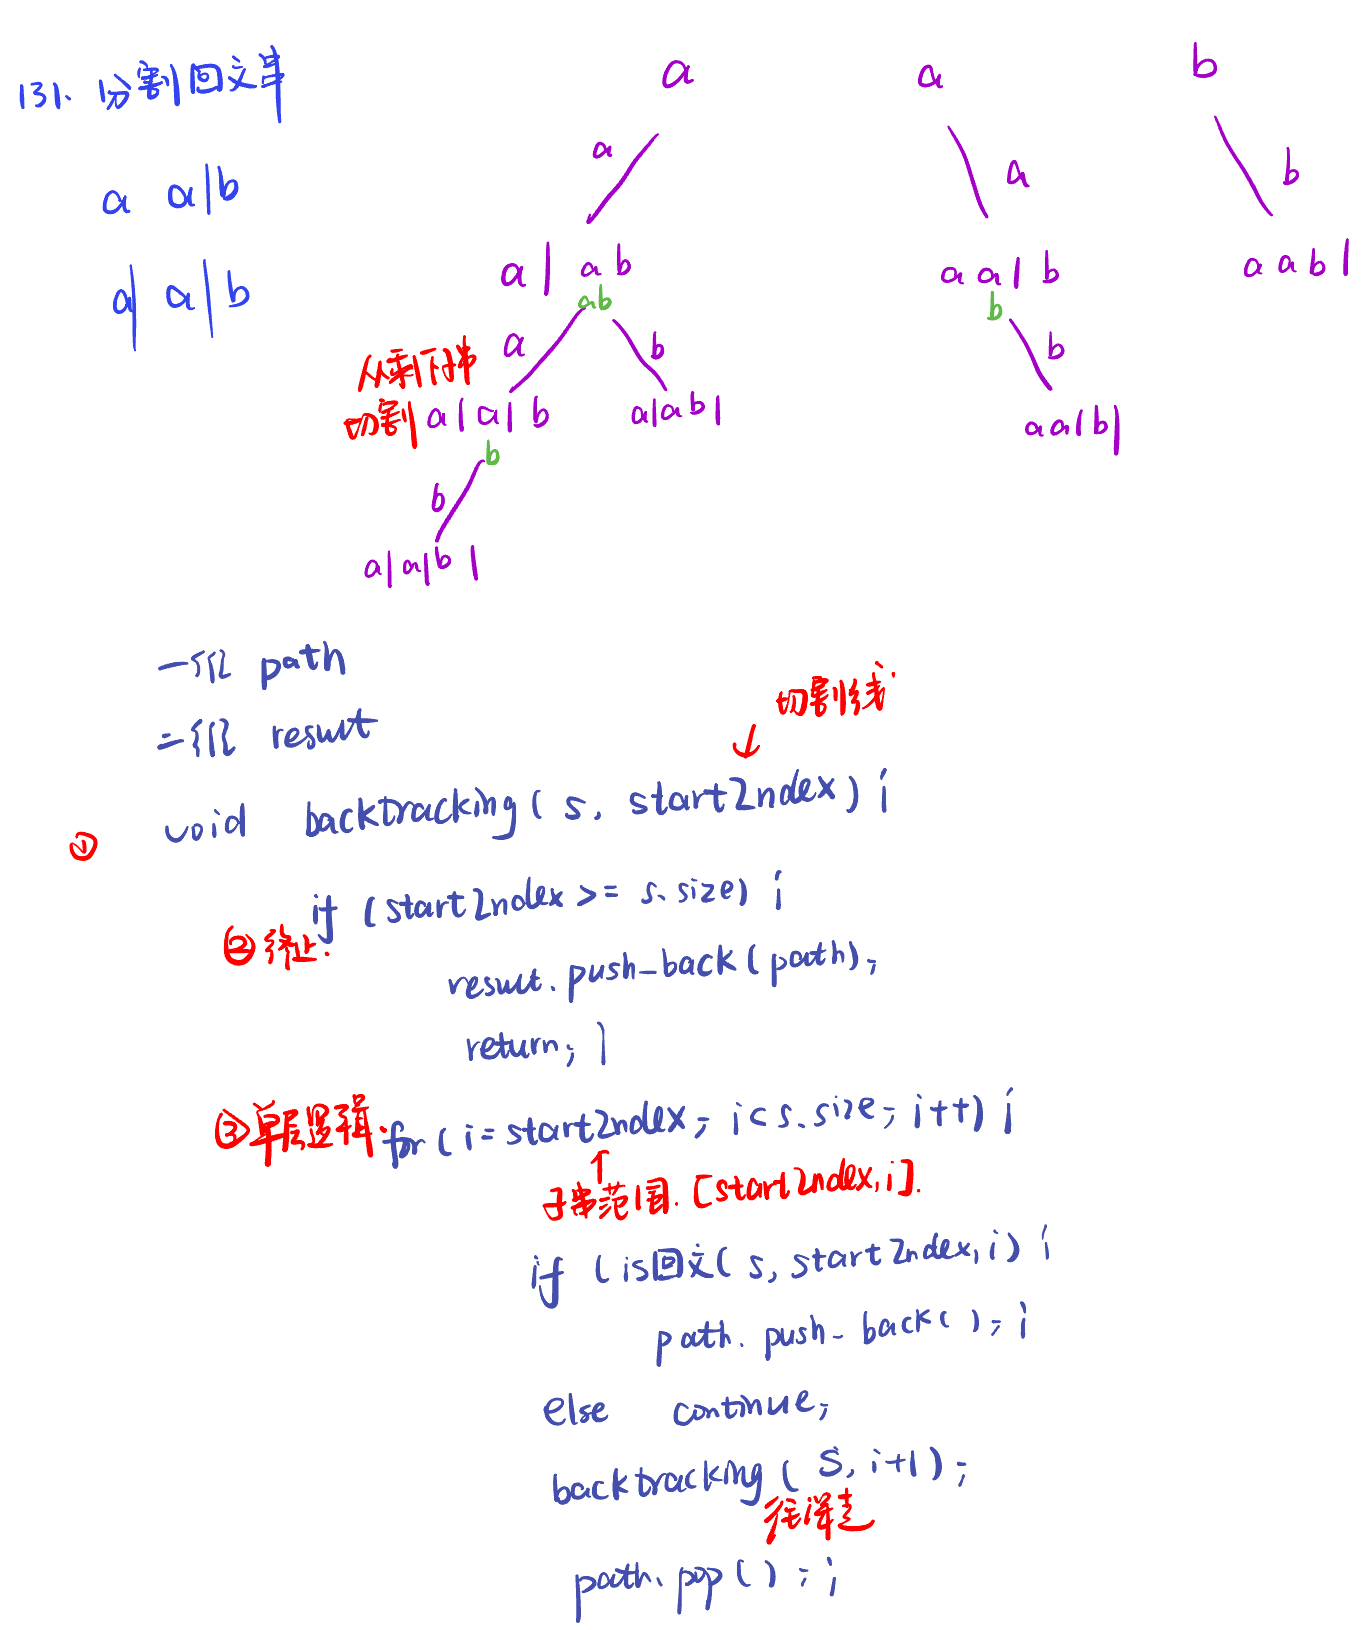 131. 分割回文串
a a|b
a| a|b
a a b
a a b
a| ab a a | b a a b |
ab b
从剩下子串 a b b
切割 a|a| b a|ab| aa|b|
b
b
a|a|b |
一维 path
二维 result
切割线
↓
① void backtracking( s, startIndex) {
② 终止. if (startIndex >= s.size) {
result.push_back(path);
return; }
③ 单层逻辑. for( i = startIndex; i < s.size; i++) {
↑
子串范围. [startIndex, i].
if ( is回文( s, startIndex, i) {
path. push_back( ); }
else continue;
backtracking ( S, i+1);
path. pop ( ); }